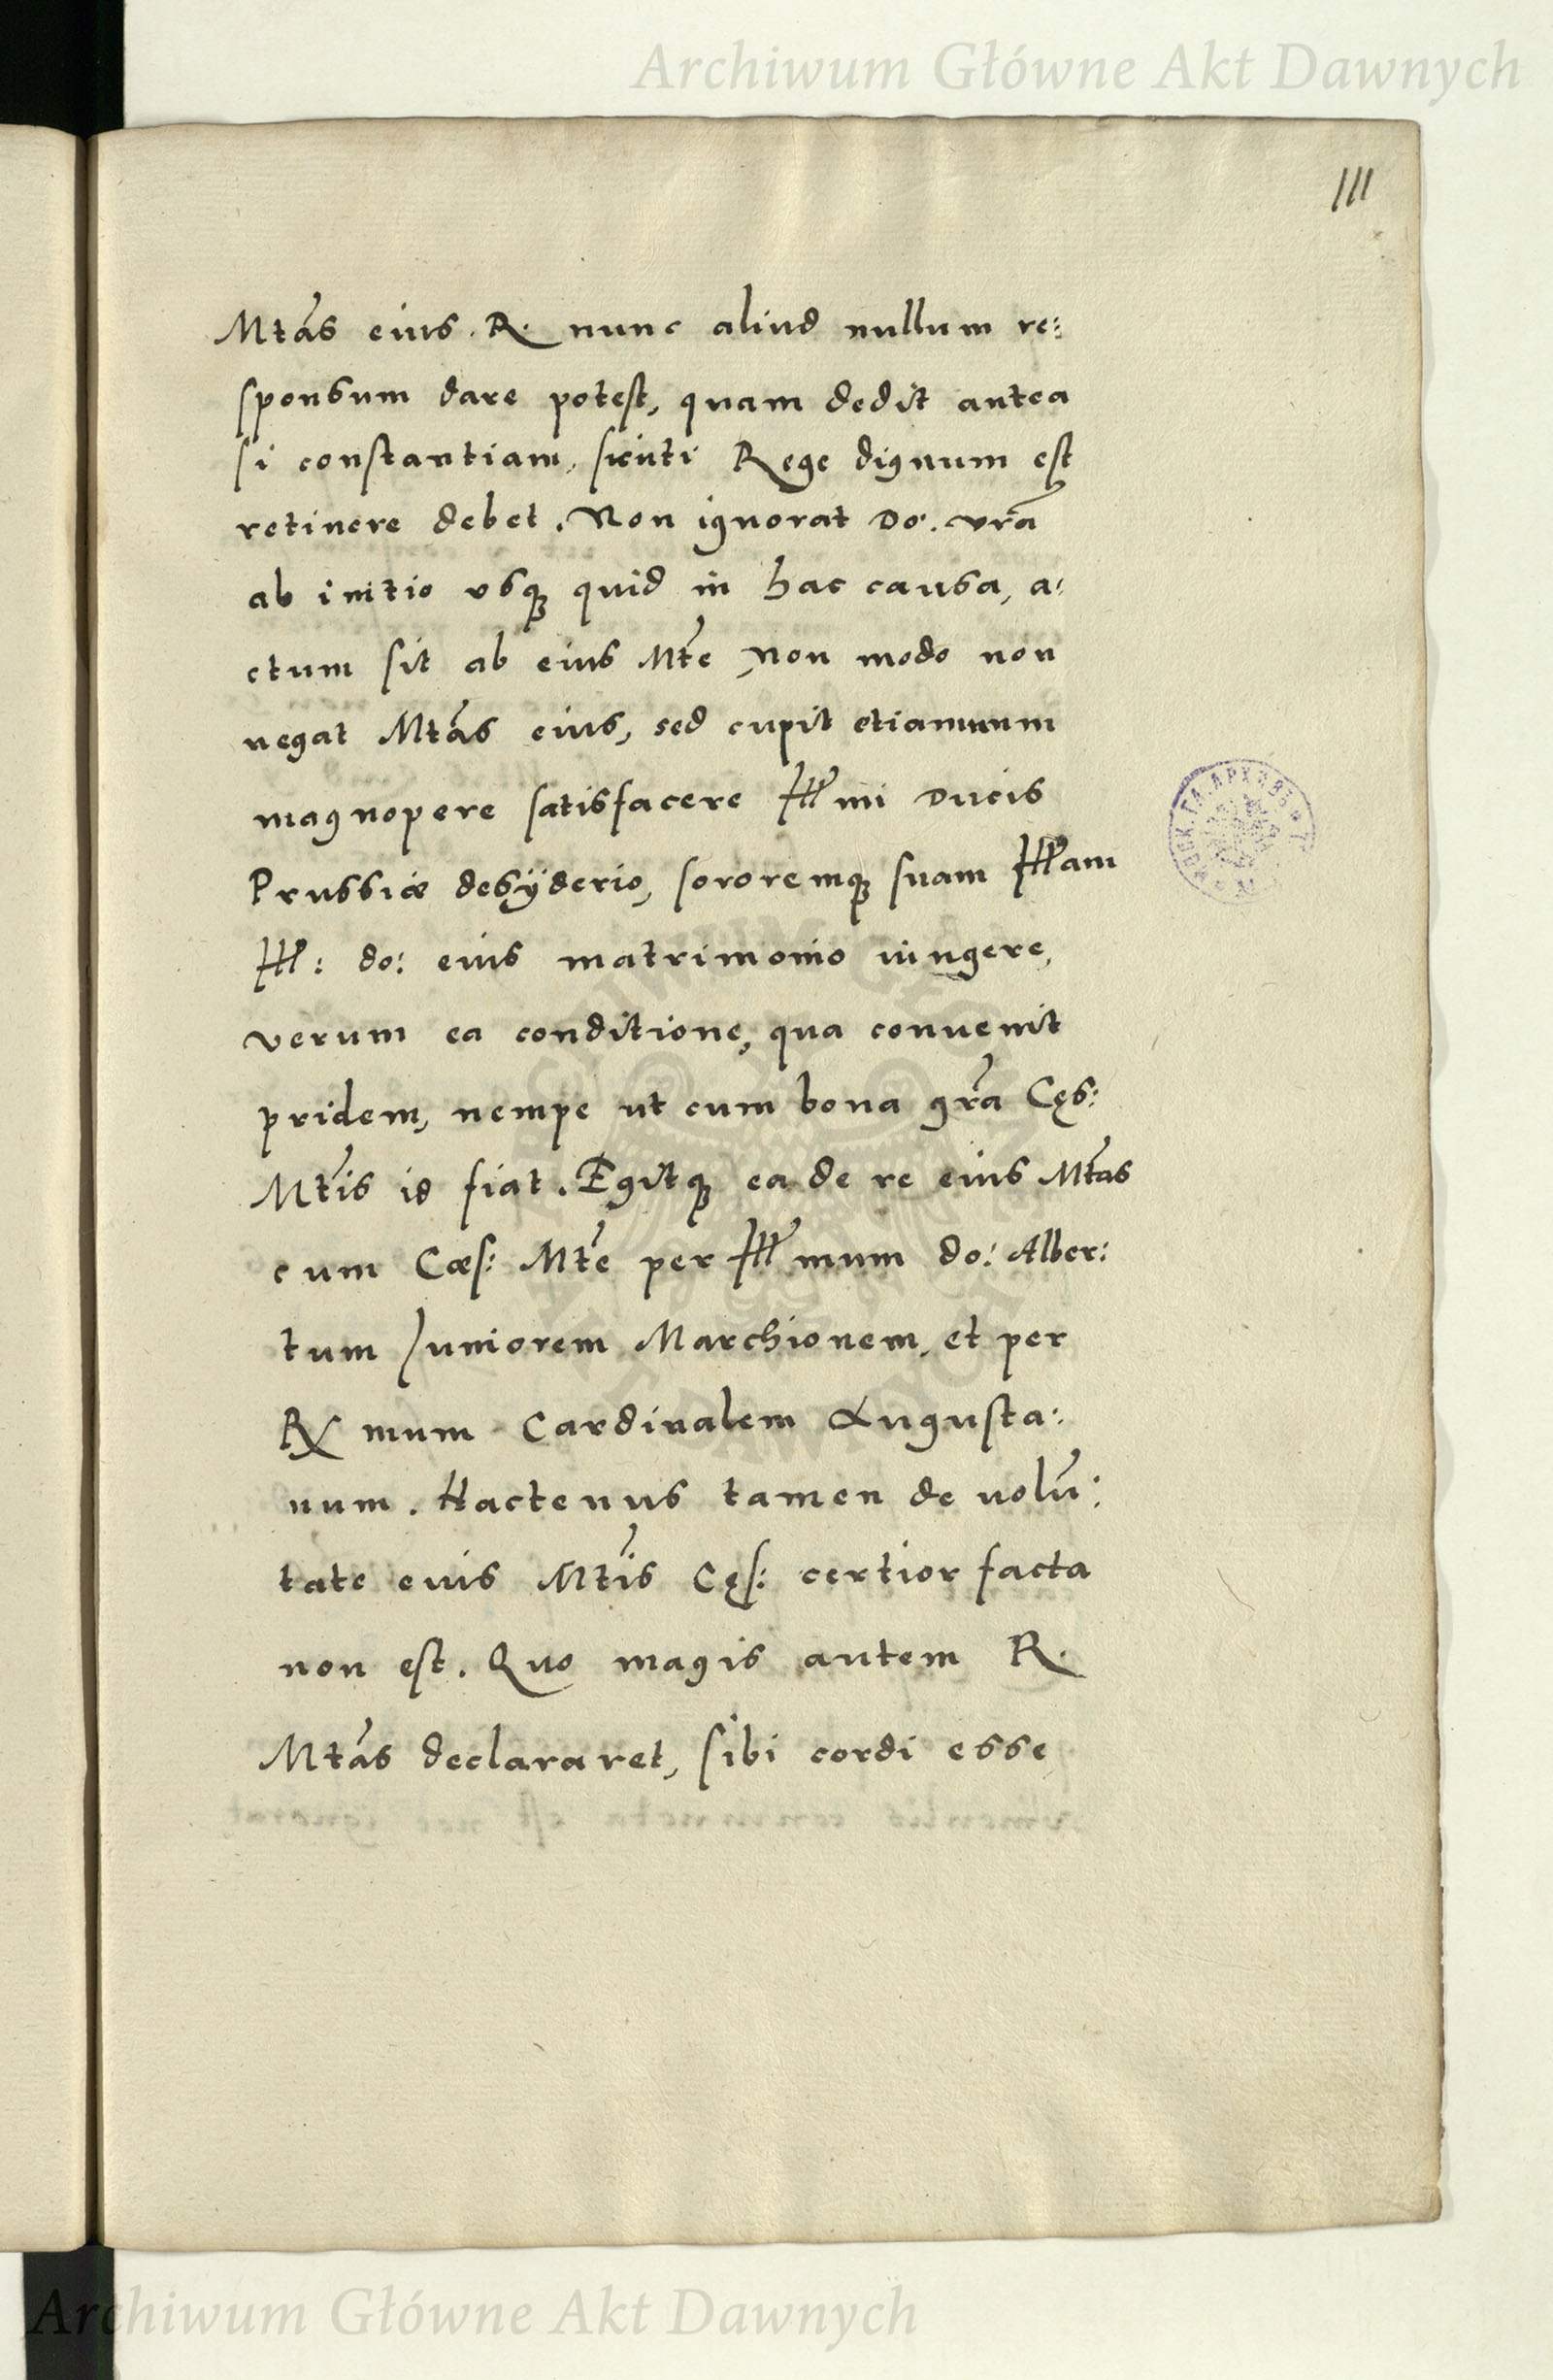 Archiwum Główne Akt Dawnych
111
Mtas eius. R. nunc aliud nullum re:
sponsum dare potest, quam dedit antea
si constantiam, sicuti Rege dignum est
retinere debet. Non ignorat Do. vra
ab initio usq quid in hac causa, a:
ctum sit ab eius Mte, non modo non
negat Mtas eius, sed cupit etiamnum
magnopere satisfacere Ill mi Ducis
Prussiæ desÿderio, sororemq suam Illam
Ill: do: eius matrimonio iungere,
verum ea conditione, qua convenit
pridem, nempe ut cum bona gra Cęs:
Mtis id fiat. Egitq ea de re eius Mtas
cum Cæs: Mte per Ill mum do: Alber:
tum Juniorem Marchionem, et per
R mum Cardinalem Augusta:
num. Hactenus tamen de volun:
tate eius Mtis Cęs: certior facta
non est. Quo magis autem R.
Mtas declararet, sibi cordi esse
Archiwum Główne Akt Dawnych